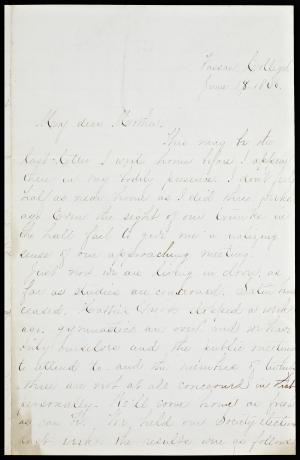 Vassar College
June 18. 186
My dear Mother.
This may be the
last letter I write home before I appear
there in my bodily presence. I don't feel
half as near home as I did three weeks
ago. Even the sight of our trunks in
the hall fail to give me a
sense of our approaching meeting.
Just now we are living in
far as studies are concerned.
ceased. stopped a week
ago. gymnastics are over and we have
only ourselves and the public meetings
to attend to and the
these are not at all concerned in that
personally. We'll come home as fresh
as can be. We held our Society election
last week. the results were as follows